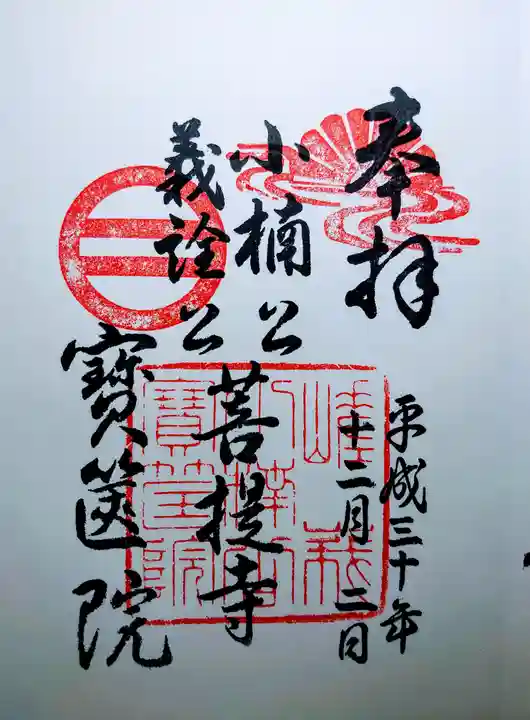 奉拝
平成三十年
十二月二日
小楠公
義詮公
菩提寺
寶篋院